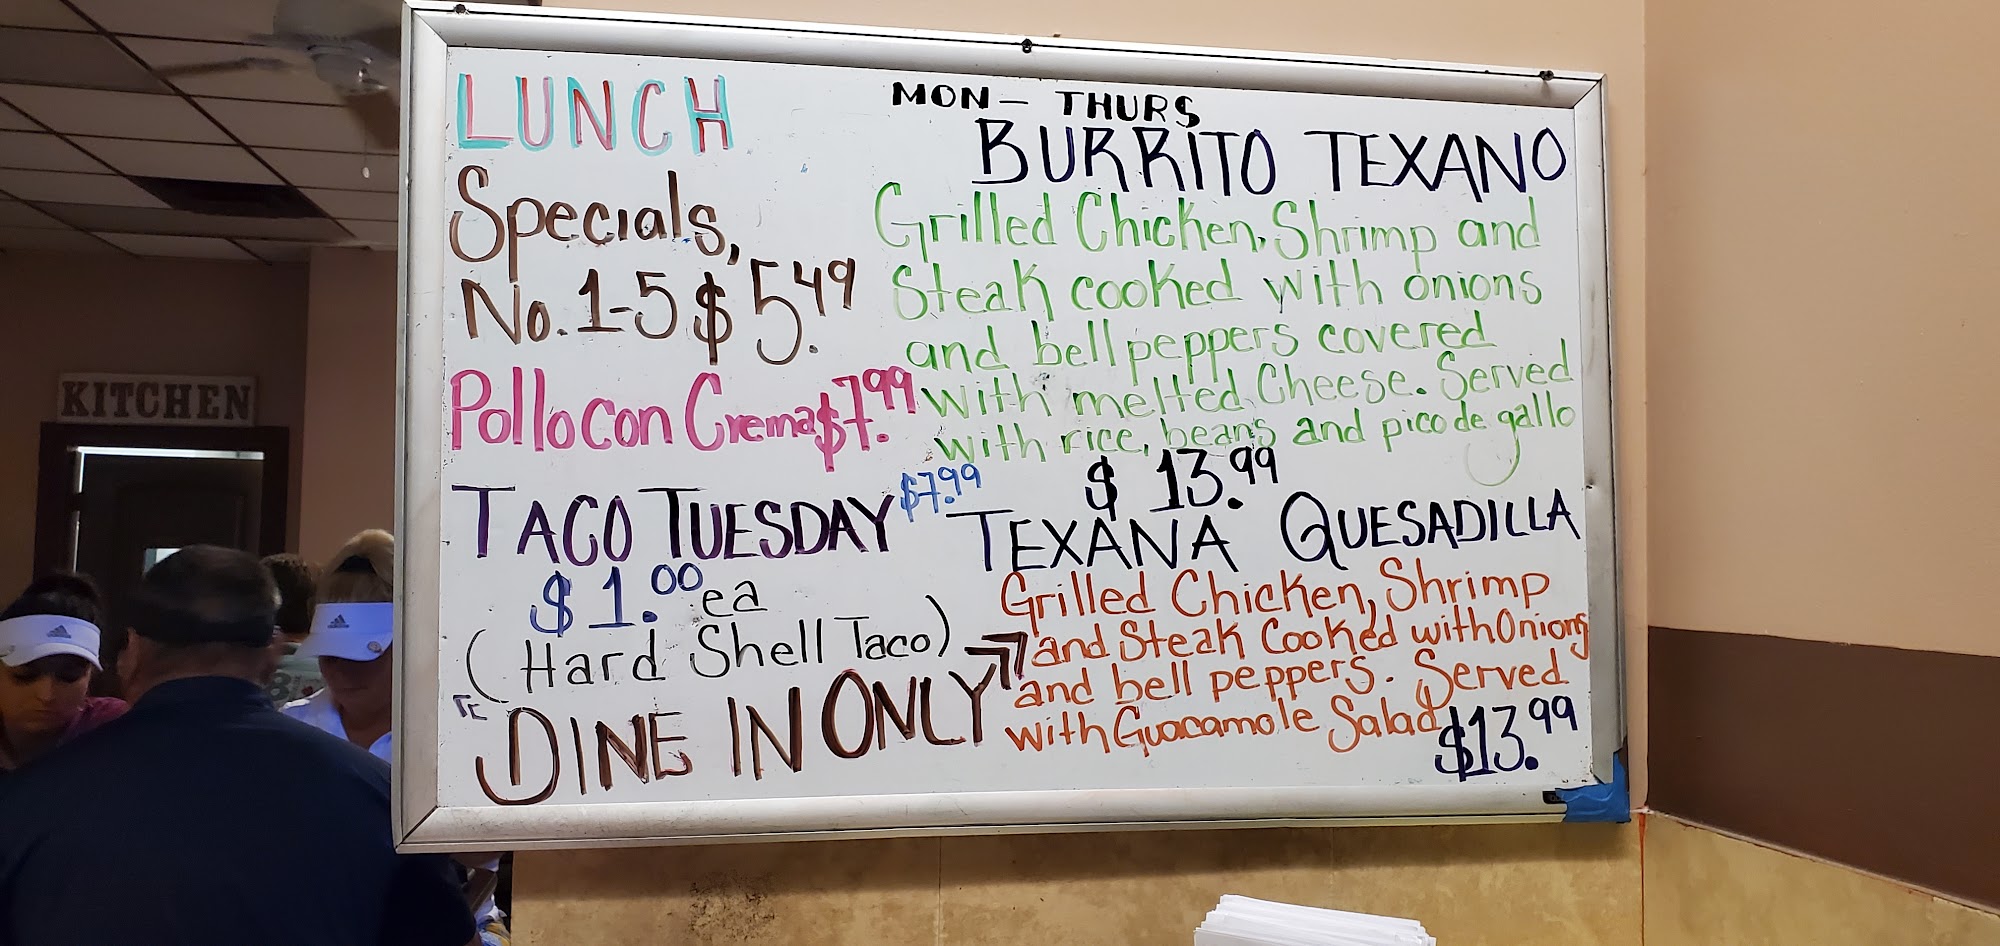 LUNCH
Specials,
No. 1-5 $5.49
Pollo con Crema $7.99
TACO TUESDAY
$1.00 ea
(Hard Shell Taco)
DINE IN ONLY
MON - THURS
BURRITO TEXANO
Grilled Chicken, Shrimp and
Steak cooked with onions
and bell peppers covered
with melted Cheese. Served
with rice, beans and pico de gallo
$13.99
$7.99
TEXANA QUESADILLA
Grilled Chicken, Shrimp
and Steak Cooked with Onions
and bell peppers. Served
with Guacamole Salad
$13.99
KITCHEN